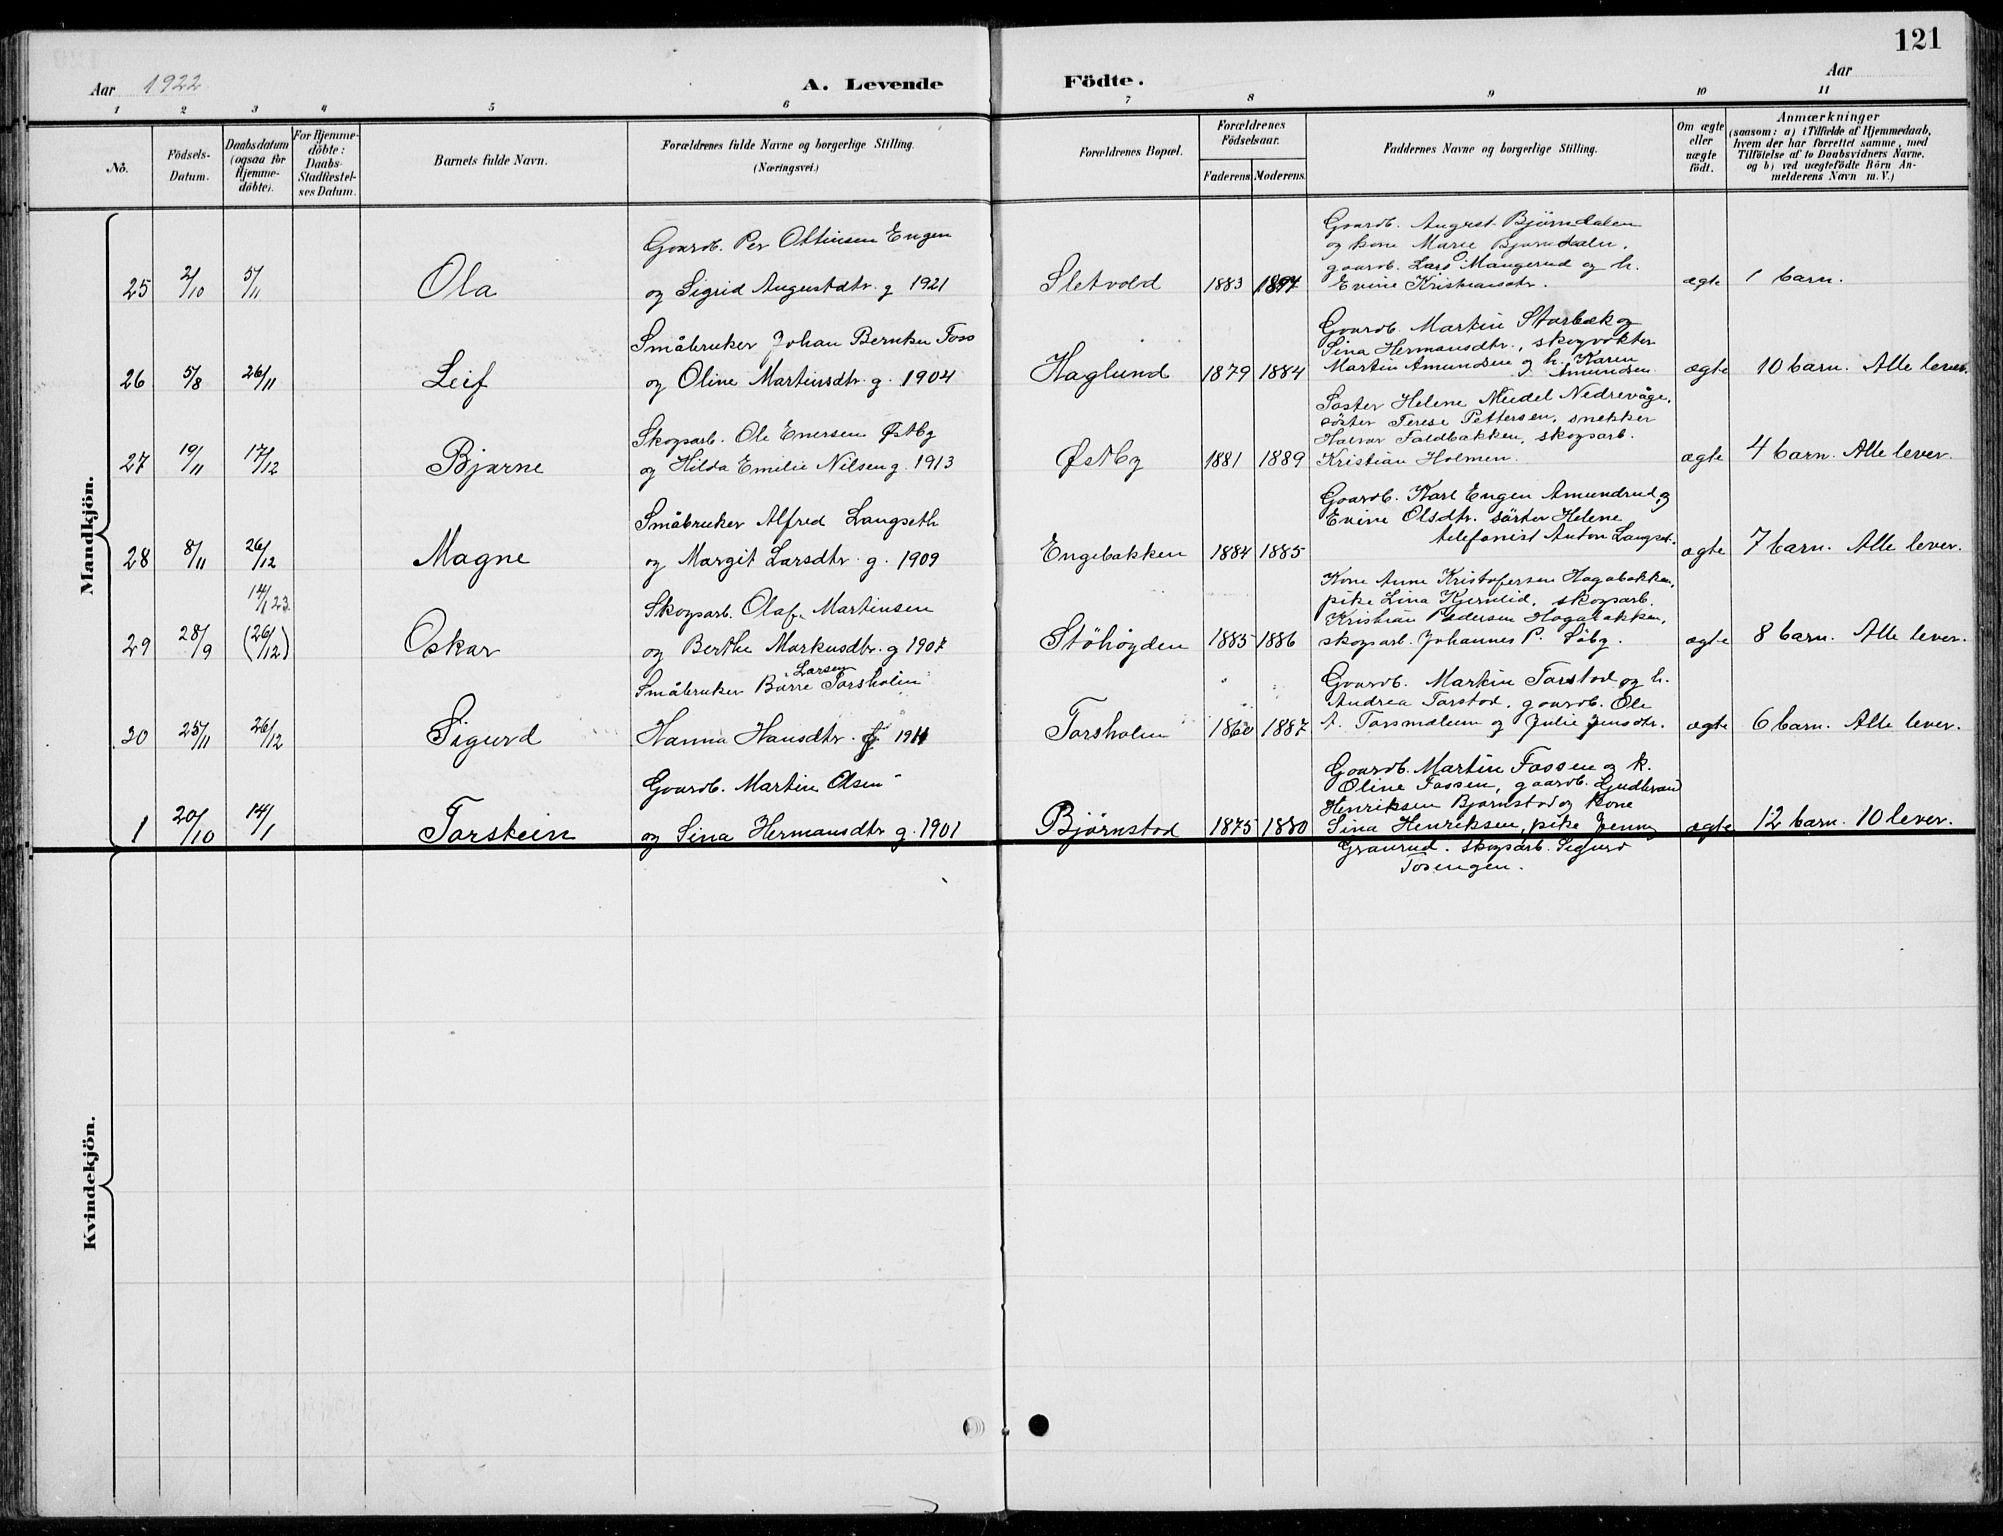 121
Aar 1922 A. Levende Födte. Aar
1 2 3 4 5 6 7 8 9 10 11
No.
Födsels-Datum.
Daabsdatum (ogsaa for Hjemme-döbte).
For Hjemme-döbte: Daabs-Stadfæstel-ses Datum.
Barnets fulde Navn.
Forældrenes fulde Navne og borgerlige Stilling. (Næringsvei.)
Forældrenes Bopæl.
Forældrenes Födselsaar.
Faderens. Moderens.
Faddernes Navne og borgerlige Stilling.
Om ægte eller uægte födt.
Anmærkninger
(saasom: a) i Tilfælde af Hjemmedaab,
hvem der har forrettet samme, med
Tilföielse af to Daabsvidners Navne,
og b) ved uægtefödte Börn An-
melderens Navn m. V.)
Mandkjön.
Gaardb. Per Ottinsen Engen
og Sigrid Augustdtr. g 1921
25 2/10 5/11 Ola Sletvold 1883 1897
Gaardb. August Bjørndalen
og kone Marie Bjørndalen,
gaardb. Lars Mangerud og h.
Evine Kristiansdtr.
ægte 1 barn.
Småbruker Johan Berntsen Foss
og Oline Martinsdtr. g. 1904
26 5/8 26/11 Leif Haglund 1879 1884
Gaardb. Martin Starbæk og
Sina Hermansdtr., skogvokter
Martin Amundsen og h. Karen
Amundsen
ægte 10 barn. Alle lever.
Skogsarb. Ole Enersen Østby
og Hilda Emilie Nilsen g. 1913
27 19/11 17/12 Bjarne Østby 1881 1889
Søster Helene Meidel Nedrevåge,
söster Terese Pettersen, snekker
Halvor Faldbakken, skogsarb.
Kristian Holmen.
ægte 4 barn. Alle lever.
Småbruker Alfred Langseth
og Margit Larsdtr. g. 1909
28 8/11 26/12 Magne Engebakken 1884 1885
Gaardb. Karl Engen Amundrud og
Evine Olsdtr. sörster Helene
telefonist Anton Langset.
ægte 7 barn. Alle lever.
14/1 23.
Skogsarb. Olaf Martinsen
og Berthe Markusdtr. g 1907
29 28/9 (26/12) Oskar Stöhögden 1885 1886
Kone Anne Kristofersen Hagabakken,
pike Lina Kjernlid, skogsarb.
Kristian Pedersen Hagabakken,
skogsarb. Johannes P. Søby.
ægte 8 barn. Alle lever.
Larsen
Småbruker Børre Torsholm
Hanna Hansdtr. g 1911
30 25/11 26/12 Sigurd Torsholm 1860 1887
Gaardb. Martin Torstad og h.
Andrea Torstad, gaardb. Ole
A. Torsmælum og Julie Jensdtr.
ægte 6 barn. Alle lever.
Gaardb. Martin Olsen
og Sina Hermansdtr g. 1901
1 20/10 14/1 Torstein Bjørnstad 1875 1880
Gaardb. Martin Fossen og k.
Oline Fossen, gaardb. Gudbrand
Henriksen Bjørnstad og kone
Sina Henriksen, pike Jenny
Granrud. skogsarb. Sigurd
Tosengen.
ægte 12 barn. 10 lever.
Kvindekjön.